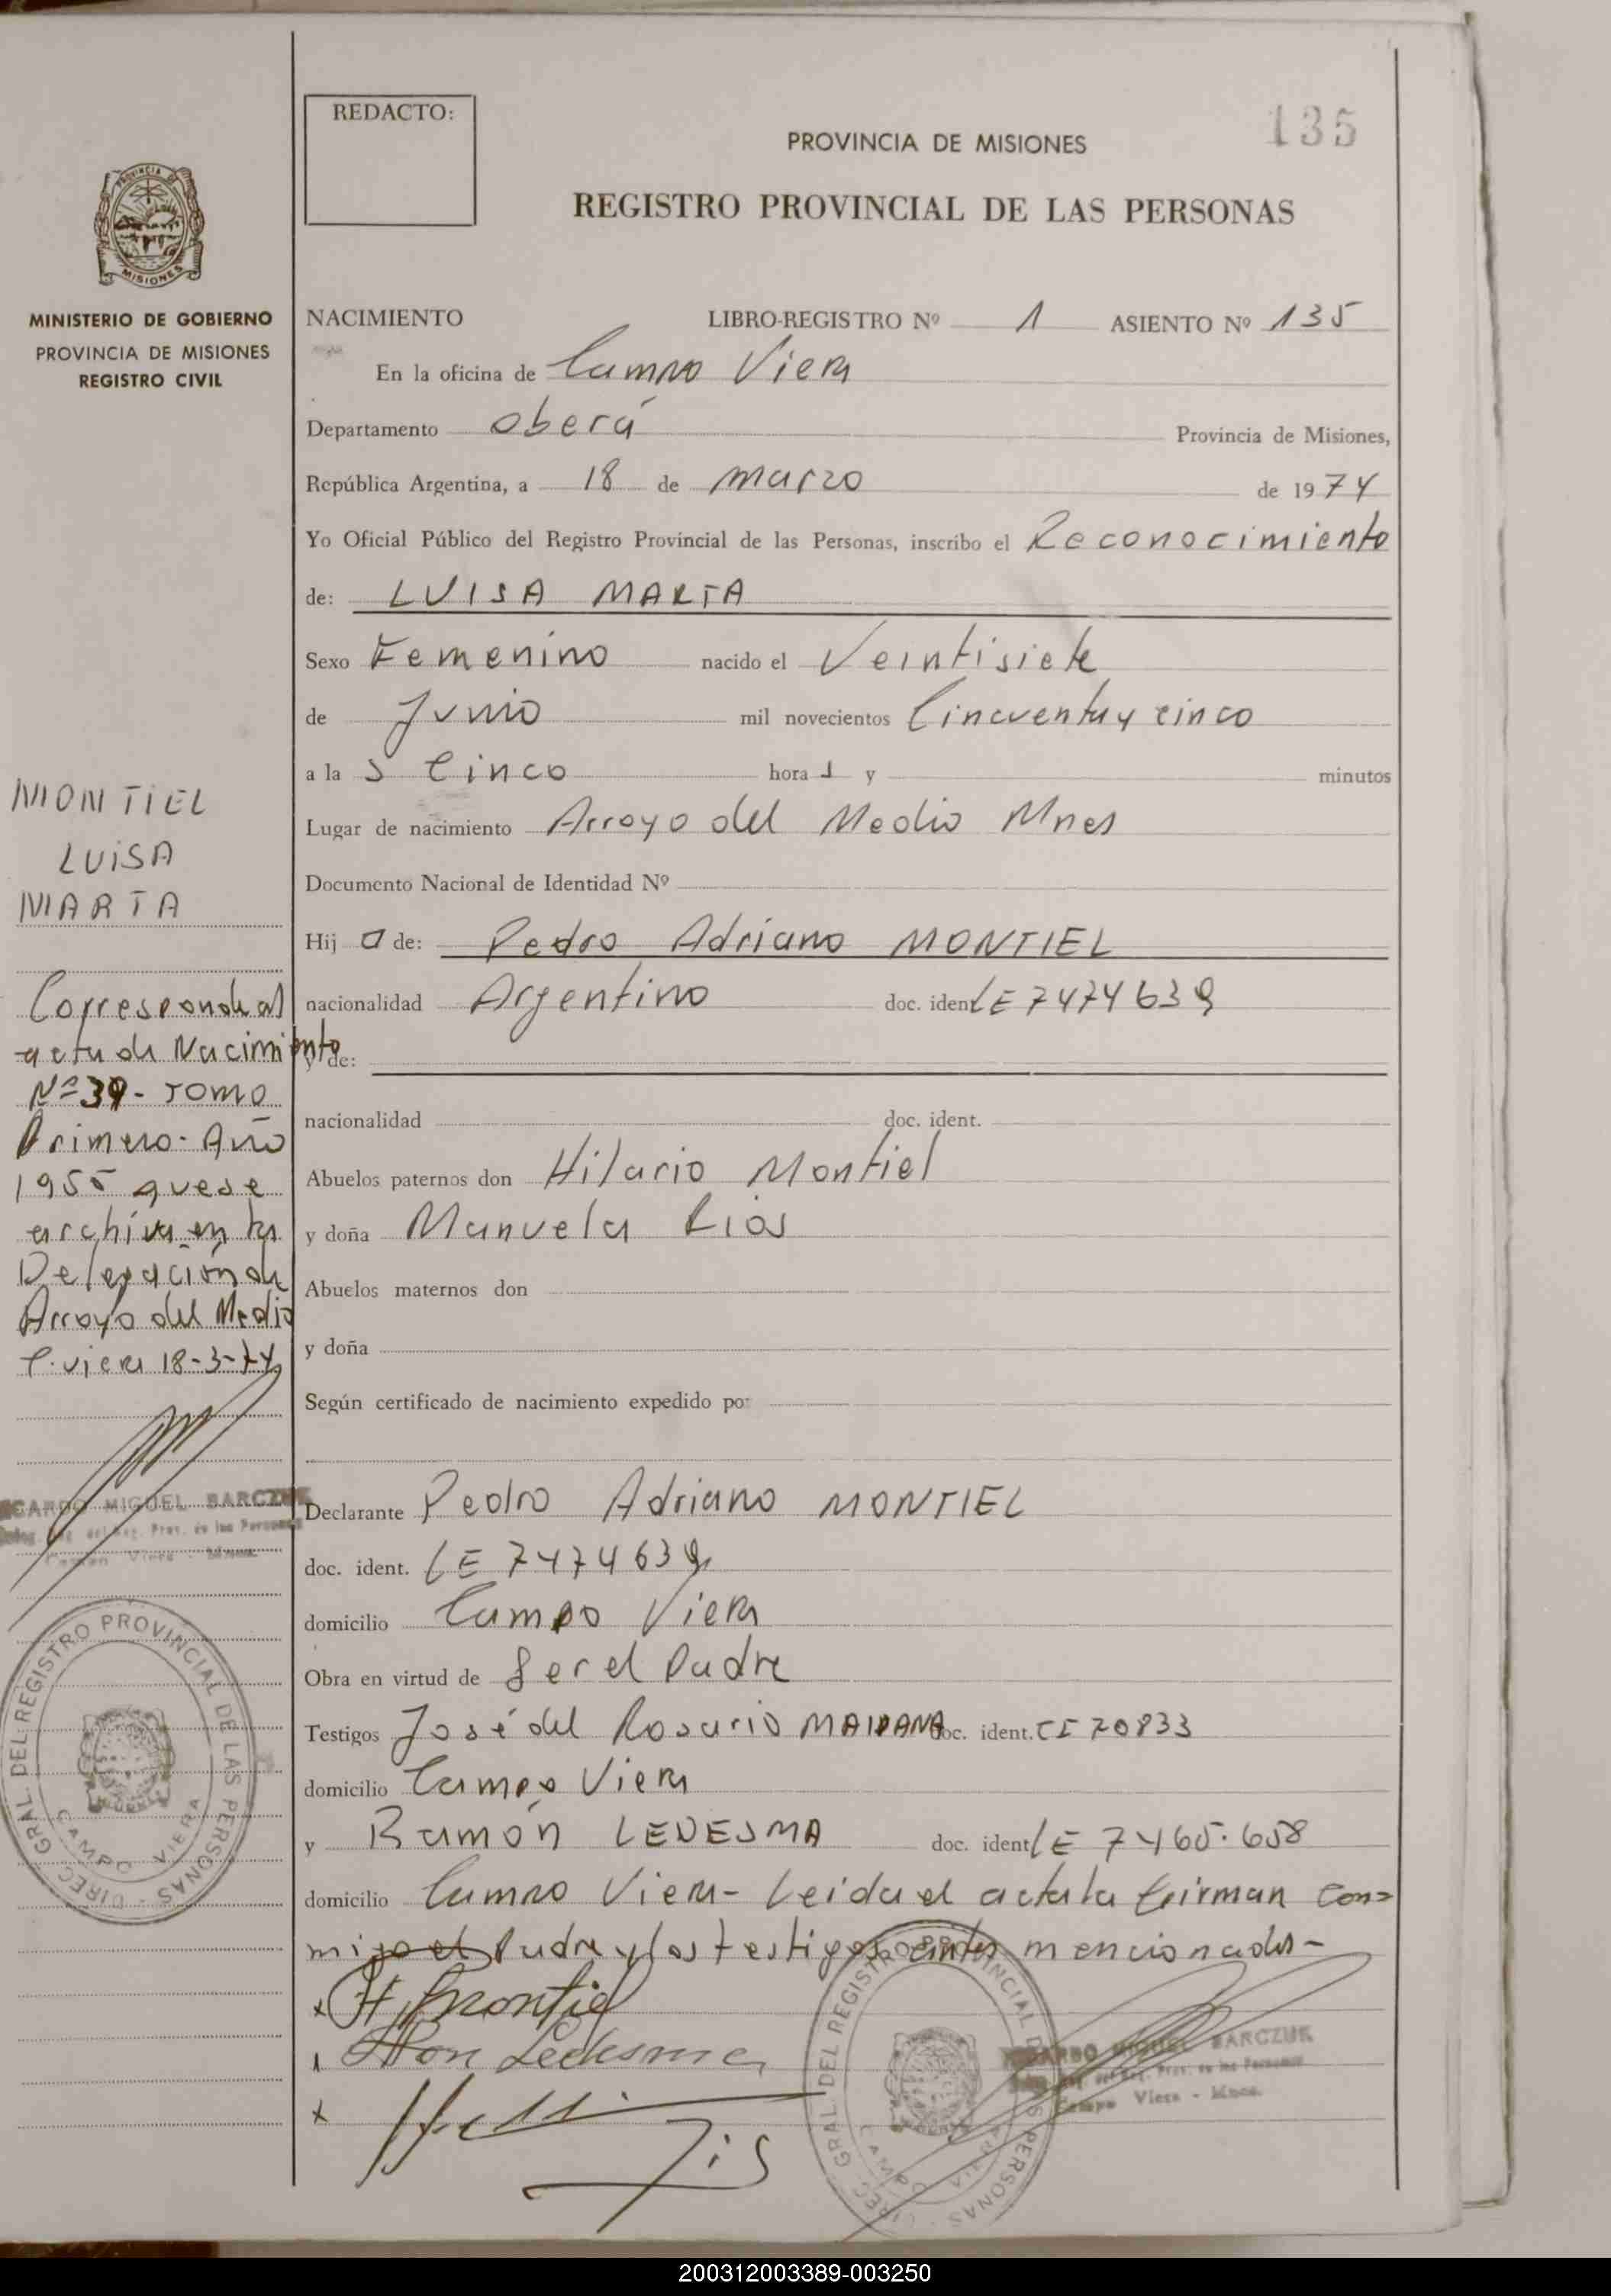 REDACTO:
135
PROVINCIA DE MISIONES
REGISTRO PROVINCIAL DE LAS PERSONAS
PROVINCIA DE
MISIONES
MINISTERIO DE GOBIERNO
PROVINCIA DE MISIONES
REGISTRO CIVIL
NACIMIENTO LIBRO-REGISTRO Nº 1 ASIENTO Nº 135
En la oficina de Campo Viera
Departamento Oberá Provincia de Misiones,
República Argentina, a 18 de marzo de 1974
Yo Oficial Público del Registro Provincial de las Personas, inscribo el Reconocimiento
de: LUISA MARTA
Sexo Femenino nacido el Veintisiete
de Junio mil novecientos Cincuenta y cinco
a la s Cinco hora s y minutos
Lugar de nacimiento Arroyo del Medio Mnes
Documento Nacional de Identidad Nº
Hij a de: Pedro Adriano MONTIEL
nacionalidad Argentino doc. ident. LE 7474639
y de:
nacionalidad doc. ident.
Abuelos paternos don Hilario Montiel
y doña Manuela Rios
Abuelos maternos don
y doña
Según certificado de nacimiento expedido por
Declarante Pedro Adriano MONTIEL
doc. ident. LE 7474639
domicilio Campo Viera
Obra en virtud de Ser el Padre
Testigos José del Rosario MAIDANA doc. ident. CI 70833
domicilio Campo Viera
y Ramón LEDESMA doc. ident LE 7465.658
domicilio Campo Viera- Leida el acta la firman con=
migo el Padre y los testigos antes mencionados-
x Montiel
Ledesma
x
MONTIEL
LUISA
MARTA
Corresponde al
acta de Nacimiento
Nº 39- Tomo
Primero- Año
1955 que se
archiva en la
Delegación de
Arroyo del Medio
C. viera 18-3-74
RICARDO MIGUEL BARCZUK
del Reg. Prov. de las Personas
Campo Viera - Mnes.
DIREC. GRAL. DEL REGISTRO PROVINCIAL DE LAS PERSONAS
CAMPO VIERA
DIREC. GRAL. DEL REGISTRO PROVINCIAL DE LAS PERSONAS
CAMPO VIERA
RICARDO MIGUEL BARCZUK
del Reg. Prov. de las Personas
Campo Viera - Mnes.
200312003389-003250